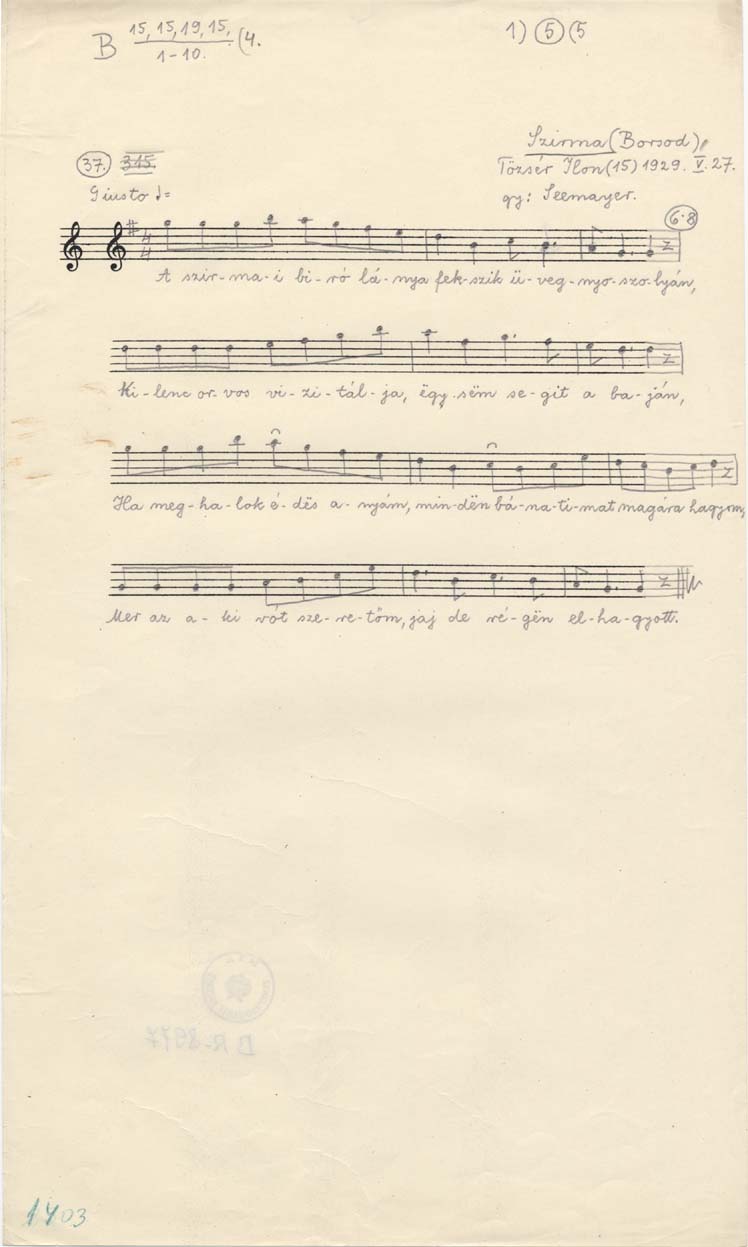 B 15, 15, 19, 15, (4.
1-10.
1) 5 (5
Szirma (Borsod)
37. 315.
Tözsér Ilon (15) 1929. V. 27.
Giusto ♩=
gy: Seemayer.
6·8
4
4
A szir-ma-i bi-ró lá-nya fek-szik ü-veg-nyo-szo-lyán,
Ki-lenc or-vos vi-zi-tál-ja, ëgy sëm se-git a ba-ján,
Ha meg-ha-lok é-dës a-nyám, min-dën bá-na-ti-mat magára hagyom,
Mer az a-ki vót sze-re-tőm, jaj de ré-gën el-ha-gyott.
B R-8977
1403